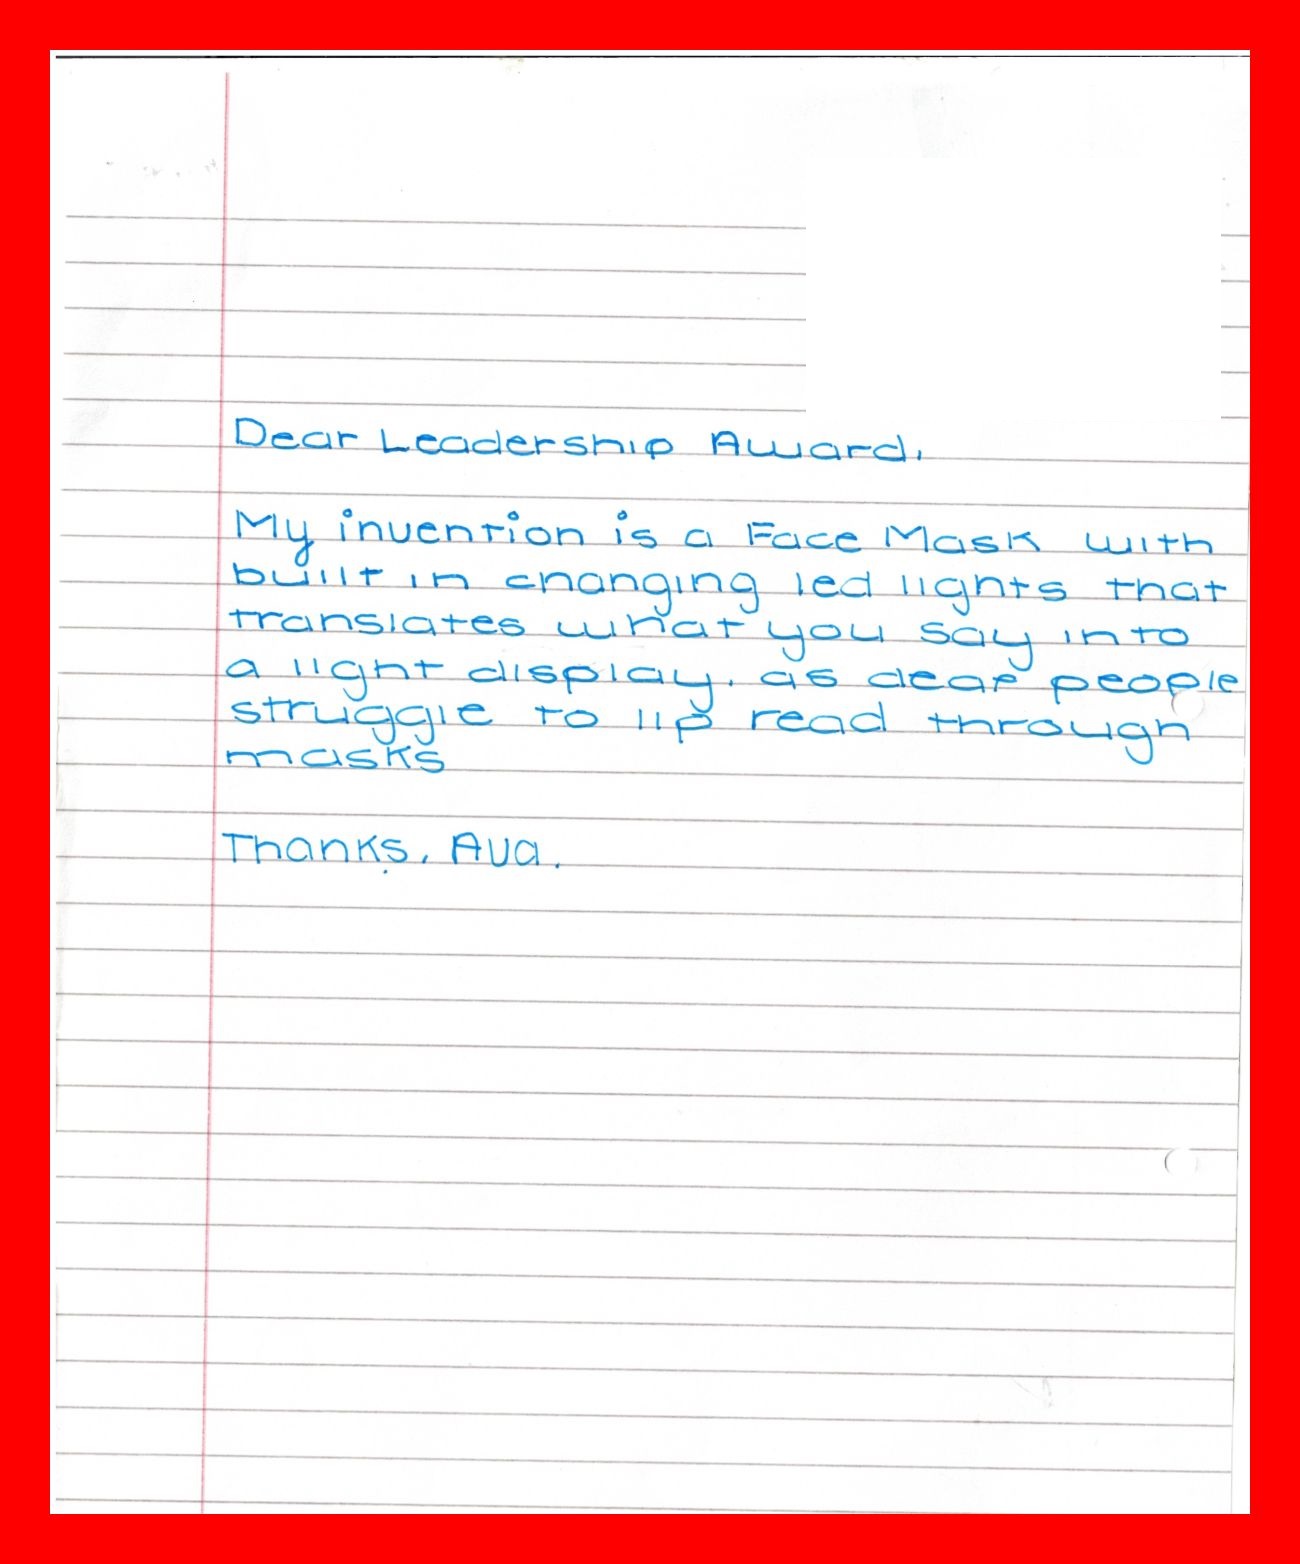 Dear Leadership Award,
My invention is a Face Mask with
built in changing led lights that
translates what you say into
a light display. as deaf people
struggle to lip read through
masks
Thanks, Ava.